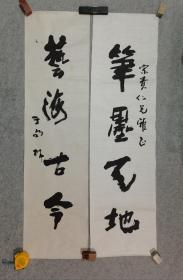 宗贵仁兄雅正
筆墨天地
藝海古今